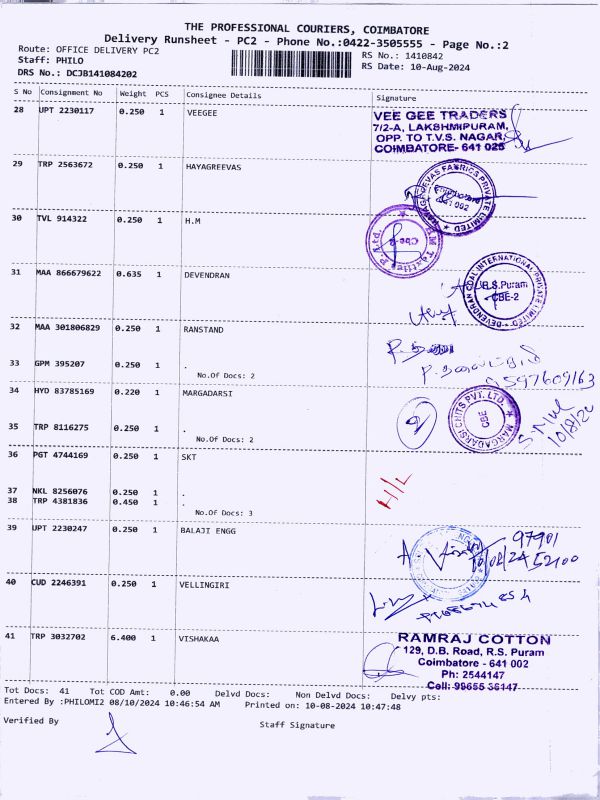 THE PROFESSIONAL COURIERS, COIMBATORE
Delivery Runsheet - PC2 - Phone No.:0422-3505555 - Page No.:2
Route: OFFICE DELIVERY PC2
RS No.: 1410842
Staff: PHILO
RS Date: 10-Aug-2024
DRS No.: DCJB141084202
S No Consignment No Weight PCS Consignee Details Signature
28 UPT 2230117 0.250 1 VEEGEE
VEE GEE TRADERS
7/2-A, LAKSHMIPURAM,
OPP. TO T.V.S. NAGAR,
COIMBATORE- 641 025
29 TRP 2563672 0.250 1 HAYAGREEVAS
HAYAGREEVAS FABRICS PRIVATE LIMITED
30 TVL 914322 0.250 1 H.M
Cbe-2
31 MAA 866679622 0.635 1 DEVENDRAN
DEVENDRAN COAL INTERNATIONAL PRIVATE LIMITED
R.S.Puram
CBE-2
32 MAA 301806829 0.250 1 RANSTAND
33 GPM 395207 0.250 1 .
No.Of Docs: 2
9597609163
34 HYD 83785169 0.220 1 MARGADARSI
MARGADARSI CHITS PVT. LTD.
CBE
35 TRP 8116275 0.250 1 .
No.Of Docs: 2
36 PGT 4744169 0.250 1 SKT
H/L
37 NKL 8256076 0.250 1 .
38 TRP 4381836 0.450 1 .
No.Of Docs: 3
39 UPT 2230247 0.250 1 BALAJI ENGG
97901
10/08/24 52100
40 CUD 2246391 0.250 1 VELLINGIRI
41 TRP 3032702 6.400 1 VISHAKAA
RAMRAJ COTTON
129, D.B. Road, R.S. Puram
Coimbatore - 641 002
Ph: 2544147
Cell: 99655 36147
Tot Docs: 41 Tot COD Amt: 0.00 Delvd Docs: Non Delvd Docs: Delvy pts:
Entered By :PHILOMI2 08/10/2024 10:46:54 AM Printed on: 10-08-2024 10:47:48
Verified By
Staff Signature